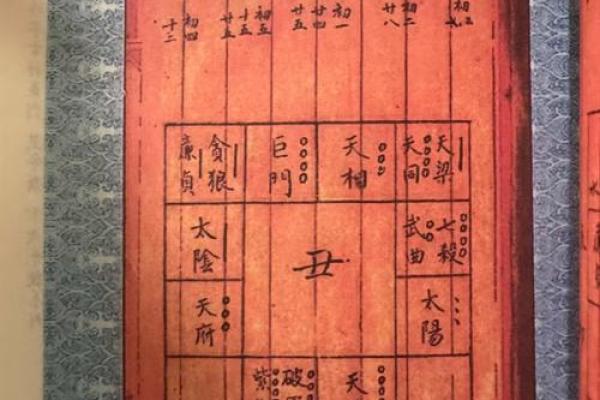 初二
廿八
初一
廿四
廿五
初五
十五
廿五
初四
十三
天梁
天同
天相
巨門
貪狼
廉貞
七殺
武曲
太陰
丑
太陽
天府
天
破
紫